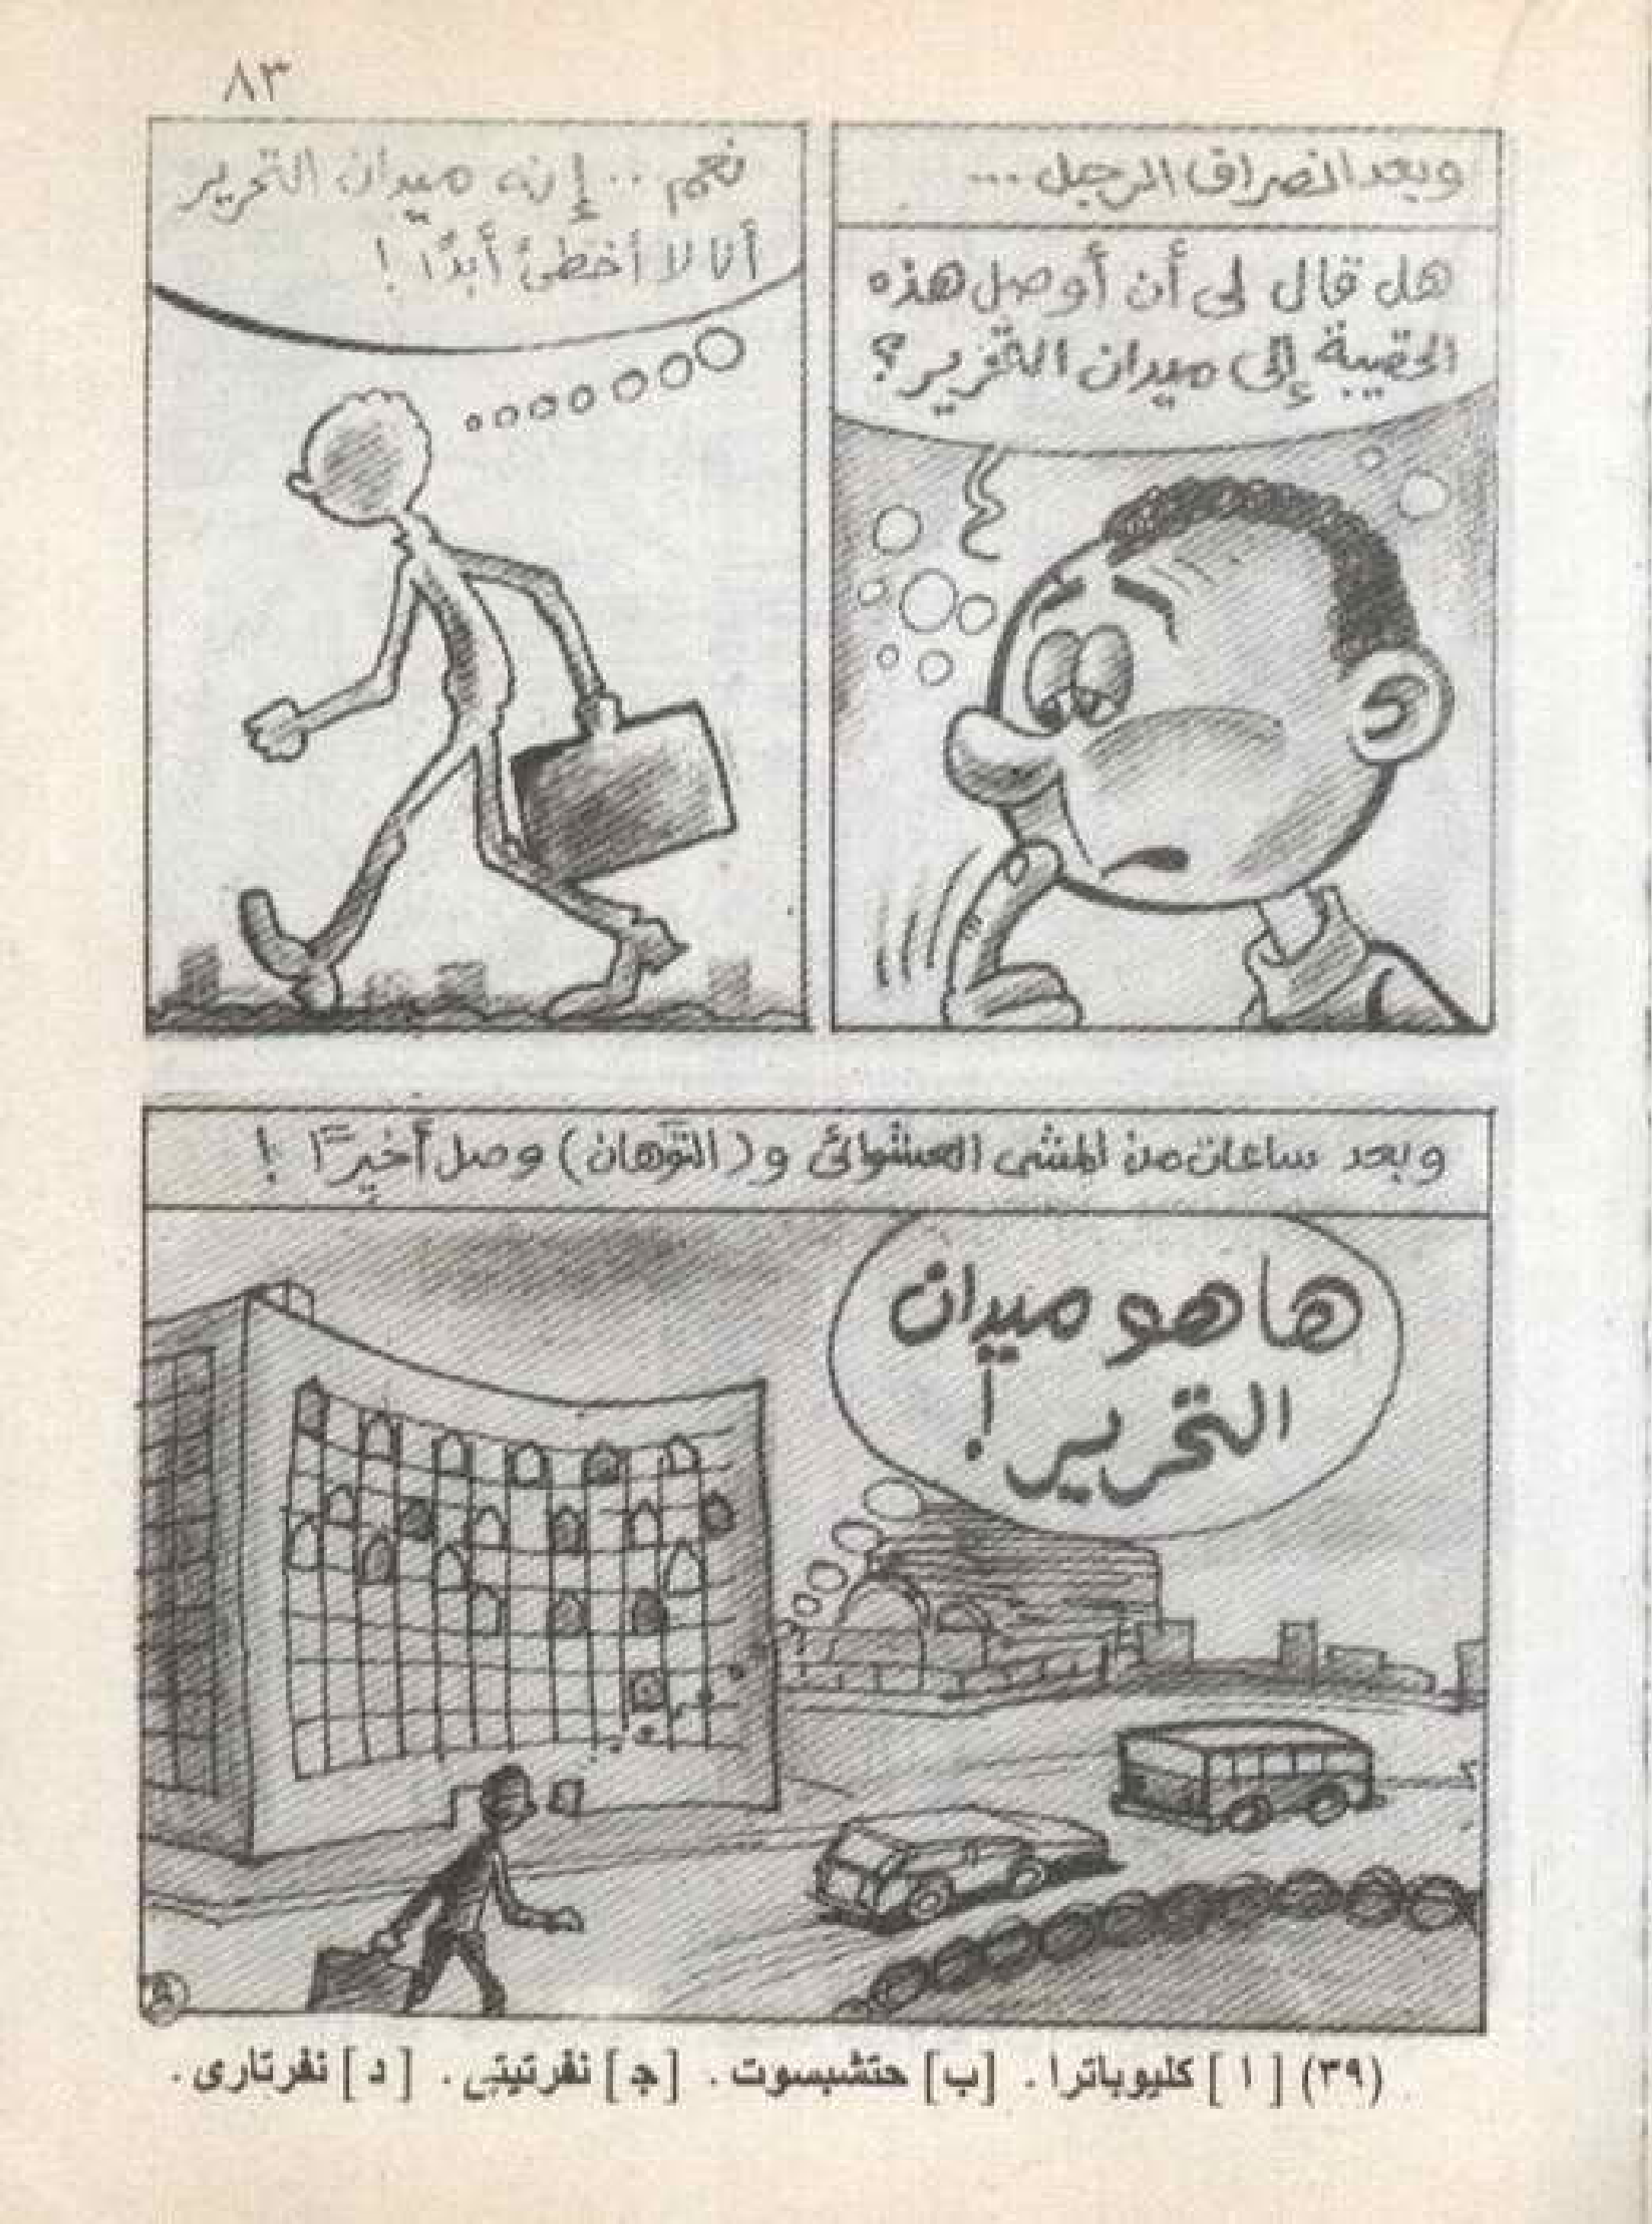 ٨٣
وبعد انصراف الرجل ...
هل قال لى أن أوصل هذه
الحقيبة إلى ميدان التحرير؟
نعم .. إنه ميدان التحرير
أنا لا أخطئ أبدًا !
وبعد ساعات من المشى العشوائى و (التوَهان) وصل أخيرًا !
ها هو ميدان
التحرير !
٨
(٣٩) [ ا ] كليوباترا . [ب] حتشبسوت . [ج] نفرتيتى . [ د ] نفرتارى .